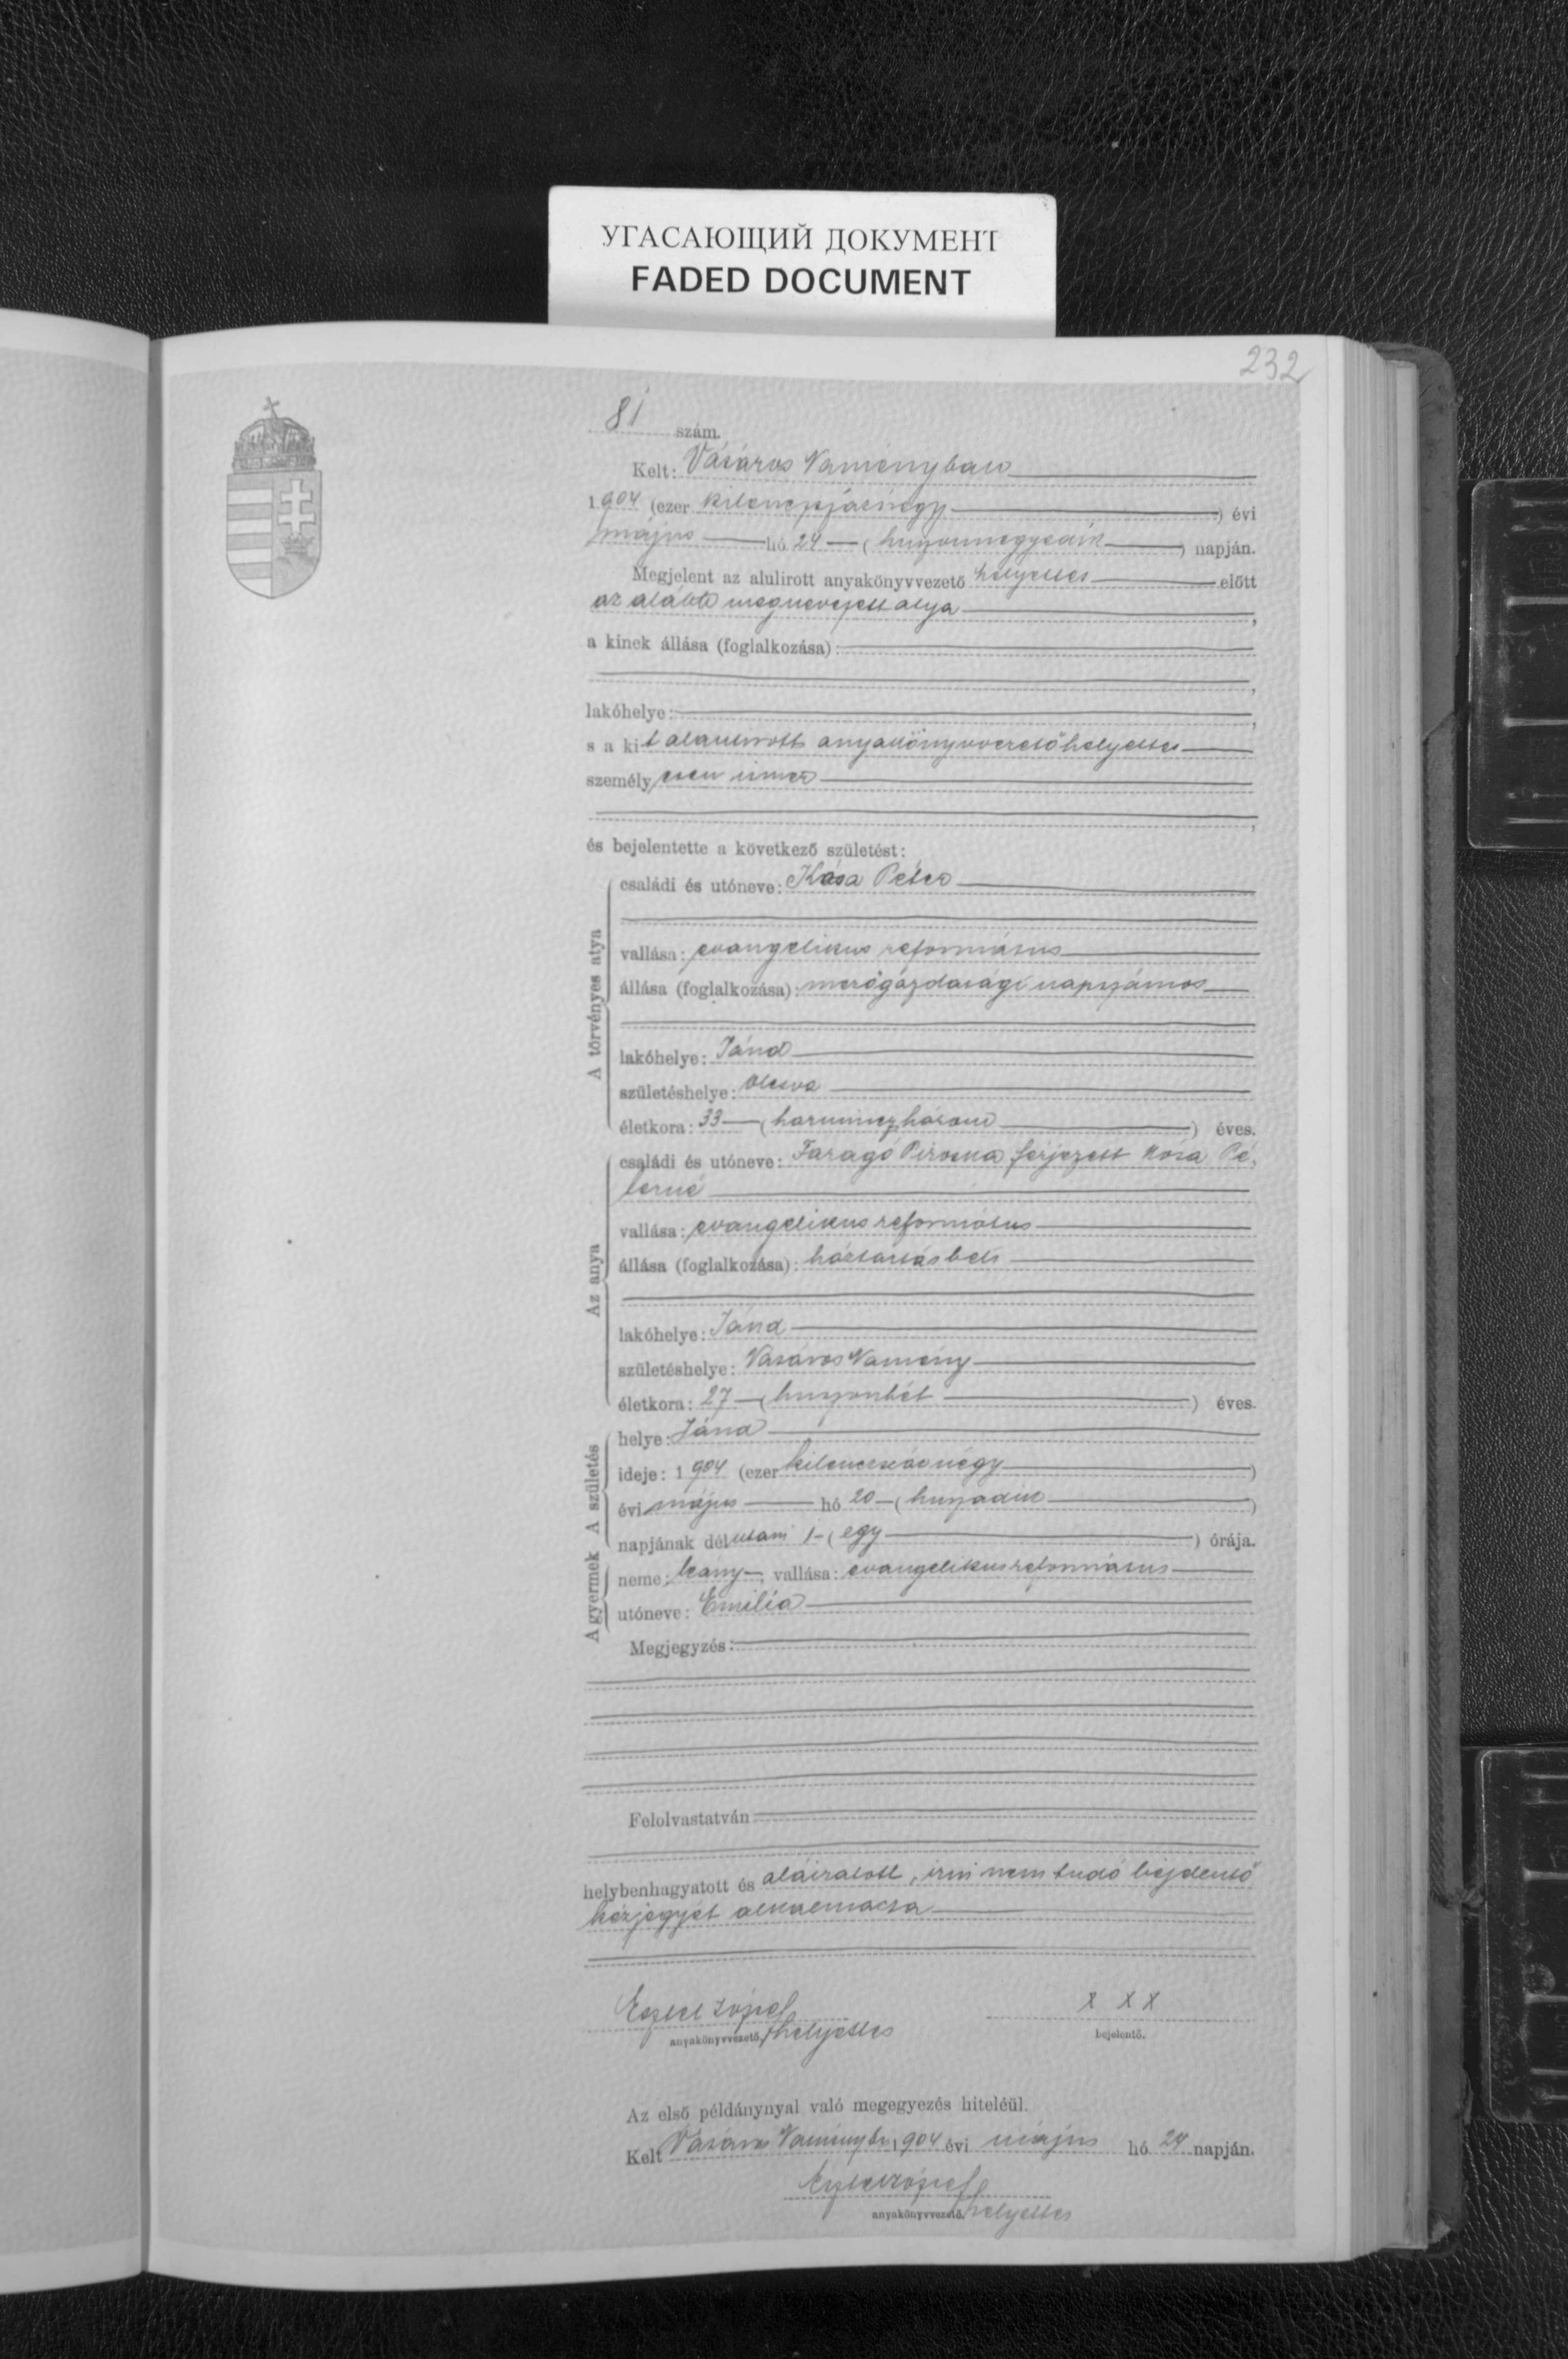 УГАСАЮЩИЙ ДОКУМЕНТ
FADED DOCUMENT
232
81 szám.
Kelt: Vásáros Naményban
1904 (ezer kilenczszáznégy) évi
május hó 24 (huszonnegyedik) napján.
Megjelent az alulirott anyakönyvvezető helyettes előtt
az alább megnevezett atya,
a kinek állása (foglalkozása):
,
lakóhelye: ,
s a kit alantirott anyakönyvvezetőhelyettes
személyesen ismer
,
és bejelentette a következő születést:
A törvényes atya
családi és utóneve: Kósa Péter
vallása: evangelikus református
állása (foglalkozása): mezőgazdasági napszámos
lakóhelye: Jánd
születéshelye: Olcsva
életkora: 33 (harminczhárom) éves.
Az anya
családi és utóneve: Faragó Piroska férjezett Kósa Pé-
terné
vallása: evangelikus református
állása (foglalkozása): háztartásbeli
lakóhelye: Jánd
születéshelye: Vásáros Namény
életkora: 27 (huszonhét) éves.
A születés
helye: Jánd
ideje: 1904 (ezer kilenczszáznégy)
évi május hó 20 (huszadik)
napjának délutáni 1 (egy) órája.
A gyermek
neme: leány, vallása: evangelikus református
utóneve: Emilia
Megjegyzés:
Felolvastatván
helybenhagyatott és aláiratott, irni nem tudó bejelentő
kézjegyét alkalmazta
József x x x
anyakönyvvezető helyettes bejelentő.
Az első példánynyal való megegyezés hiteléül.
Kelt Vásáros Naményba 1904 évi május hó 24 napján.
József
anyakönyvvezető helyettes